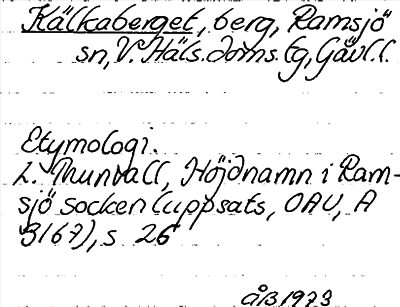 Kälkaberget, berg, Ramsjö
sn, V. Häls. doms. tg, Gävl. l.
Etymologi.
L. Thunvall, Höjdnamn i Ram-
sjö socken (uppsats, OAU, A
3167), s. 26
ÅB 1973